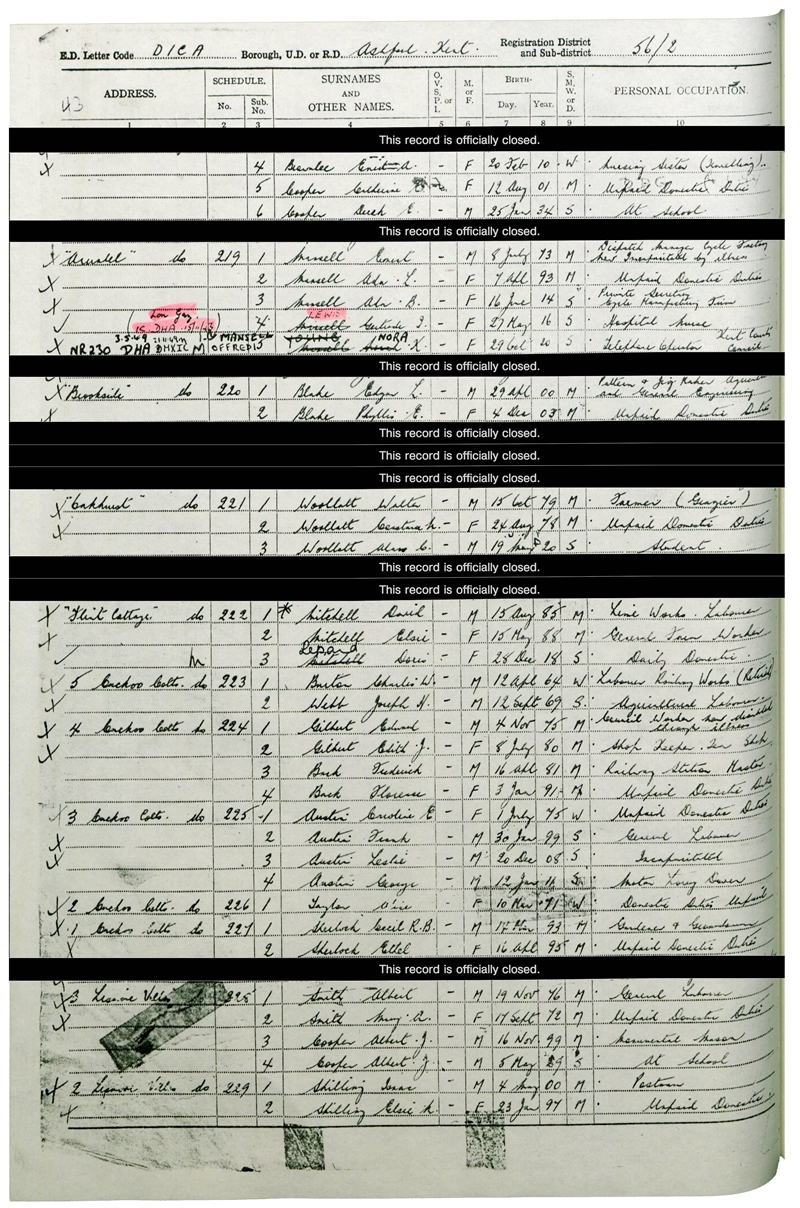 E.D. Letter Code DICA Borough, U.D. or R.D. Ashford. Kent. Registration District and Sub-district 56/2
43
ADDRESS. SCHEDULE. No. Sub. No. SURNAMES AND OTHER NAMES. O, V, S, P, or I. M. or F. BIRTH- Day. Year. S. M. W. or D. PERSONAL OCCUPATION.
1 2 3 4 5 6 7 8 9 10
This record is officially closed.
4 A. - F 20 Feb 10 W Nursing Sister
5 Cooper Catherine - F 12 Aug 01 M Unpaid Domestic Duties
6 Cooper Derek E. - M 25 Jan 34 S At School
This record is officially closed.
do 219 1 Ernest - M 8 July 73 M Dispatch Manager Cycle Factory
now Incapacitated by illness
2 Ada L. - F 7 Apl 93 M Unpaid Domestic Duties
3 Ada B. - F 16 June 14 S Private Secretary
Cycle Firm
Lon Gaz. LEWIS
15 DHA 4 Gertrude - F 27 May 16 S Hospital Nurse
3.5.49 MANSELL YOUNG NORA Kent County
NR230 DHA DMXIL M OFFRED15 K. - F 29 Oct 20 S Telephone Operator Council
This record is officially closed.
"Brookside" do 220 1 Blake Edgar L. - M 29 Apl 00 M Pattern & Jig Maker
and General Engineering
2 Blake Phyllis E. - F 4 Dec 03 M Unpaid Domestic Duties
This record is officially closed.
This record is officially closed.
This record is officially closed.
"Oakhurst" do 221 1 Woollatt Walter - M 15 Oct 79 M Farmer (Grazier)
2 Woollatt - F 24 Aug 78 M Unpaid Domestic Duties
3 Woollatt C. - M 19 20 S Student.
This record is officially closed.
This record is officially closed.
"Flint Cottage" do 222 1 * Mitchell David - M 15 Aug 85 M Lime Works. Labourer
2 Mitchell Elsie - F 15 May 88 M General Farm Worker
Lepard
3 Mitchell Doris - F 28 Dec 18 S Daily Domestic
5 Cuckoo Cotts. do 223 1 Burton Charles W. - M 12 Apl 64 W Labourer Railway Works (Retired)
2 Webb Joseph H. - M 12 Sept 69 S Agricultural Labourer.
4 Cuckoo Cotts do 224 1 Gilbert Edward - M 4 Nov 75 M Council Worker now disabled
through illness
2 Gilbert Edith J. - F 8 July 80 M Shop Keeper. Tea Shop
3 Back Frederick - M 16 Apl 81 M Railway Station Master
4 Back Florence - F 3 Jan 91 M Unpaid Domestic Duties
3 Cuckoo Cotts. do 225 1 Austin Caroline E - F 1 July 75 W Unpaid Domestic Duties
2 Austin Frank - M 30 Jan 99 S General Labourer
3 Austin Leslie - M 20 Dec 08 S Incapacitated
4 Austin George - M 12 Jan S Motor Lorry Driver
2 Cuckoo Cotts. do 226 1 Taylor Alice - F 10 Mar 71 W Domestic Duties Unpaid
1 Cuckoo Cotts do 227 1 Sherlock Cecil R.B. - M 17 Mar 93 M Gardener & Groundsman
2 Sherlock Ethel - F 16 Apl 95 M Unpaid Domestic Duties
This record is officially closed.
3 Villas 228 1 Smith Albert - M 19 Nov 76 M General Labourer
2 Smith Mary A. - F 17 Sept 72 M Unpaid Domestic Duties
3 Cooper Albert J. - M 16 Nov 99 M Monumental Mason
4 Cooper Albert J. - M 5 May 29 S At School
2 Villas do 229 1 Shilling Isaac - M 4 Aug 00 M Postman
2 Shilling Elsie - F 23 Jan 97 M Unpaid Domestic